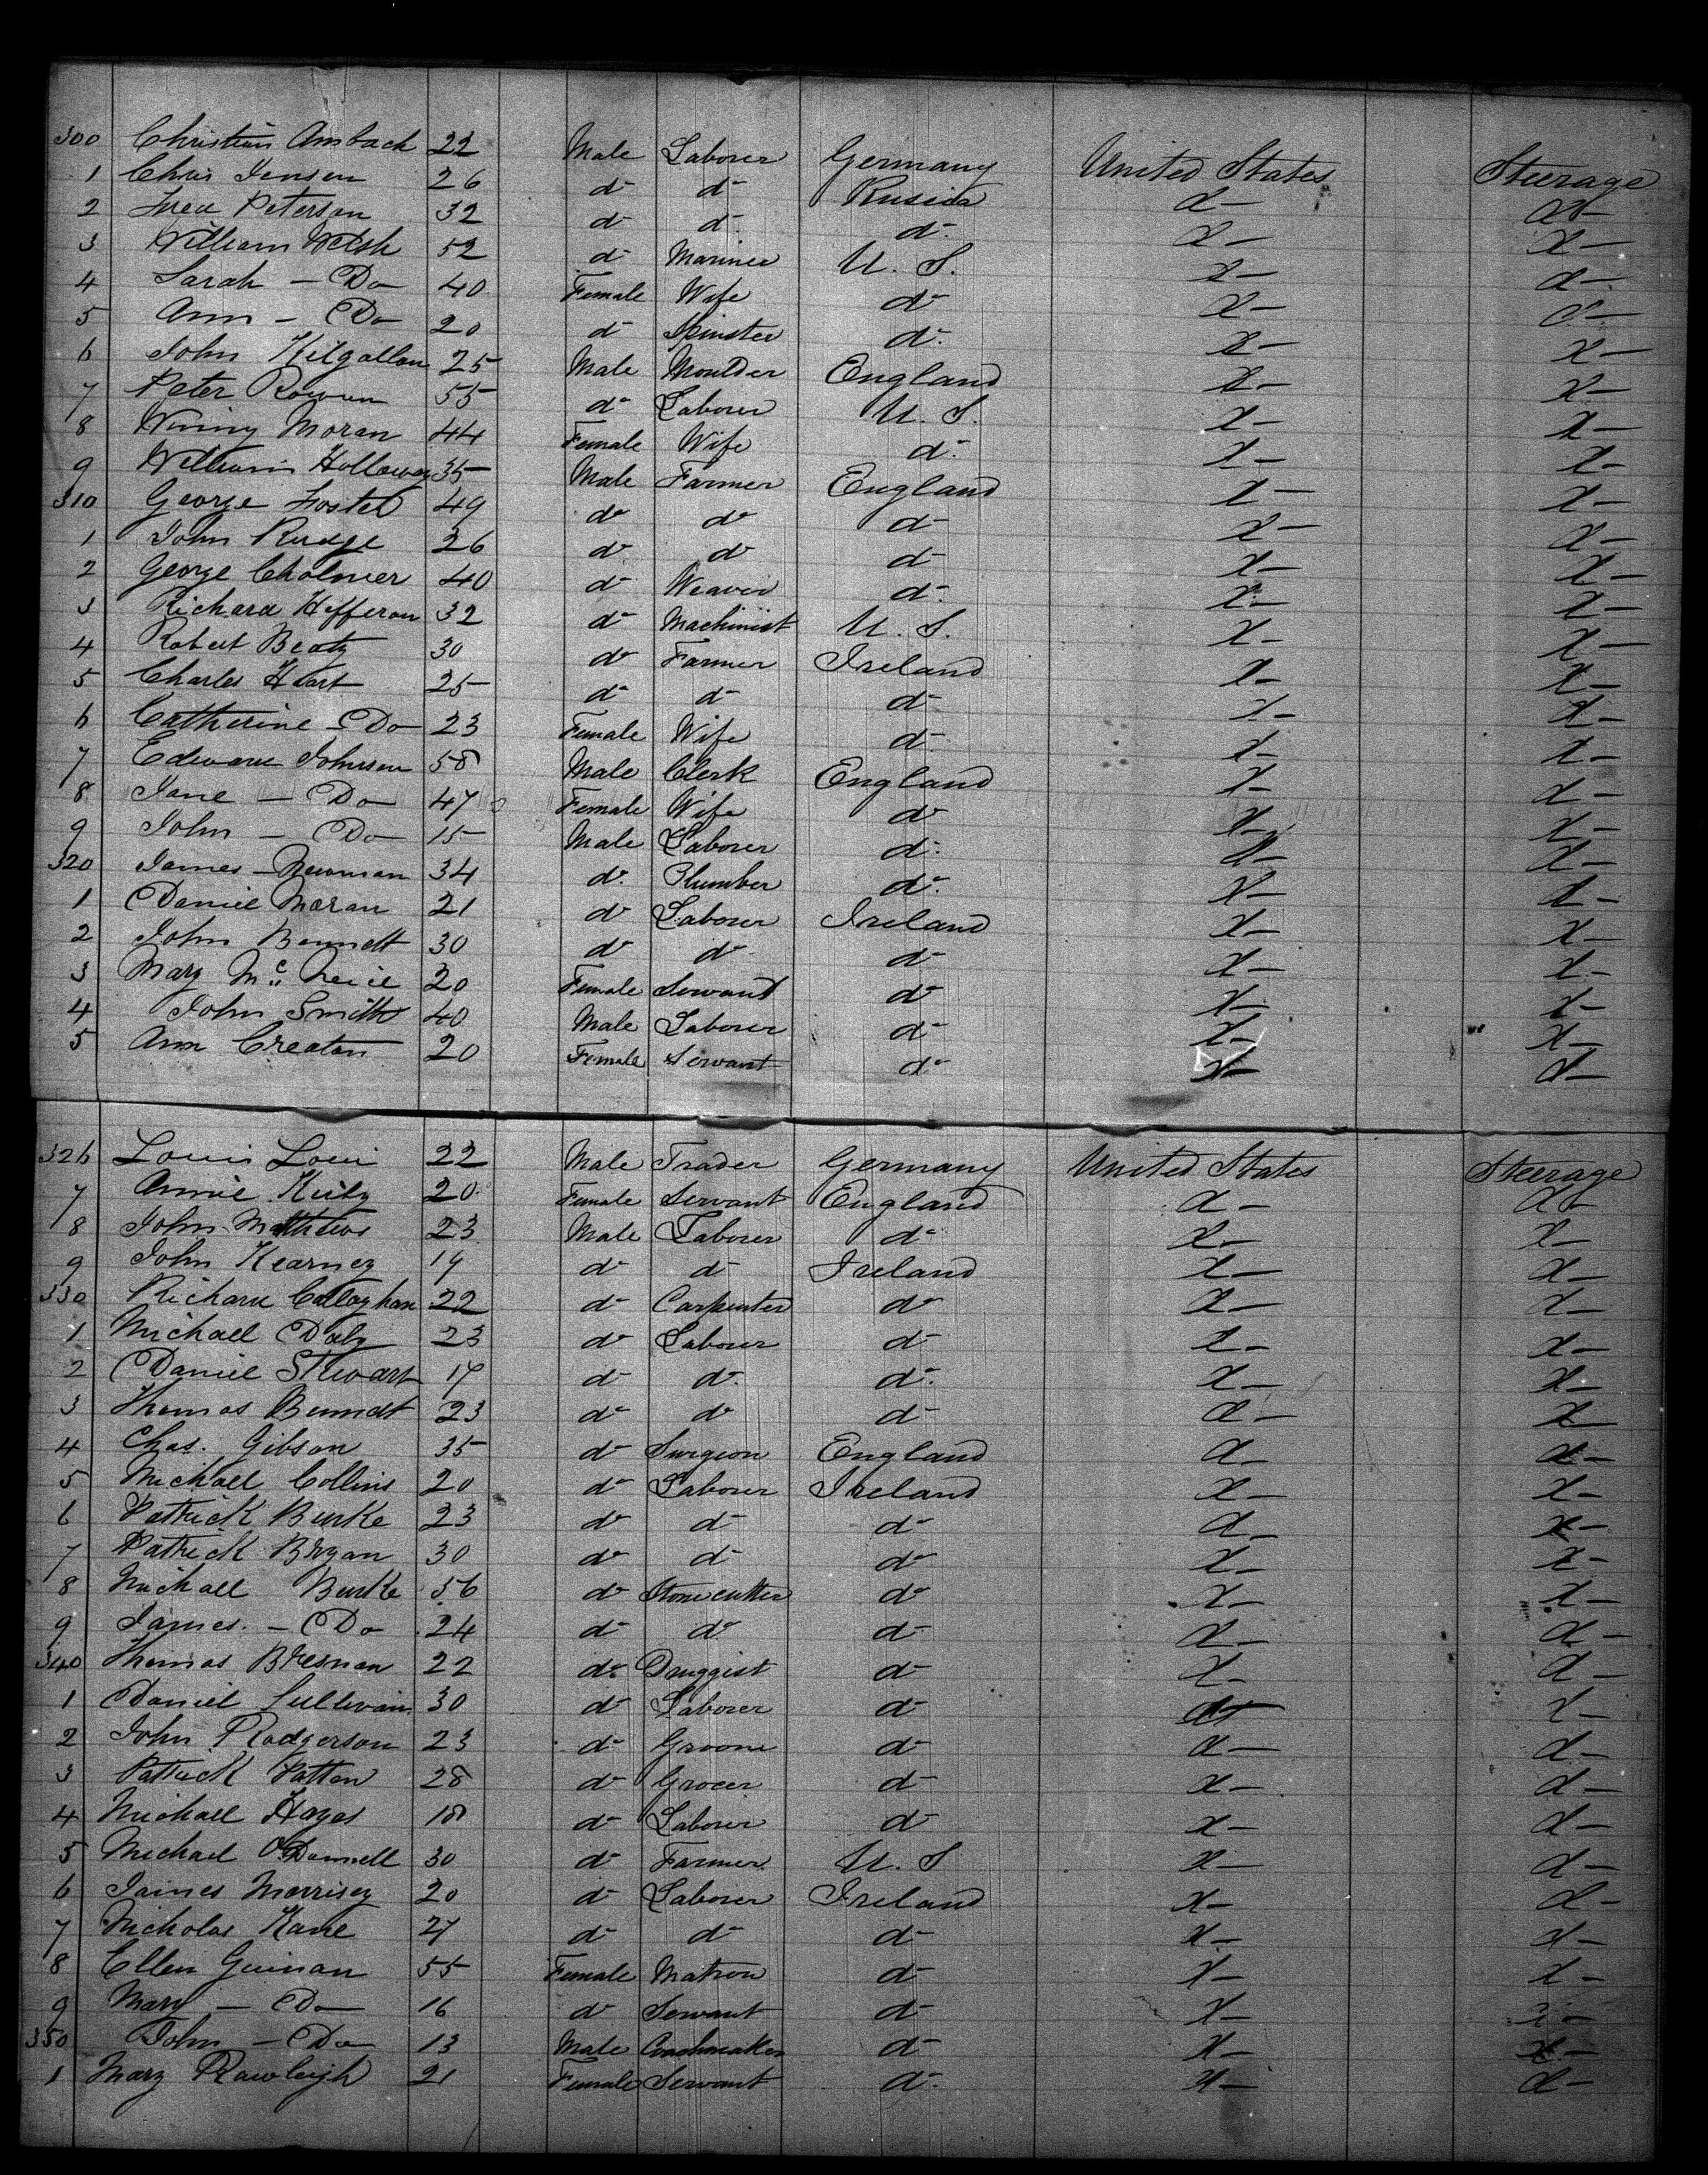 300 Christian Ambach 22 Male Laborer Germany United States Steerage
1 Chris Jensen 26 do do Russia do do
2 Fred Peterson 32 do do do do do
3 William Welsh 52 do Mariner U. S. do do
4 Sarah - Do 40 Female Wife do do do
5 Ann - Do 20 do Spinster do do do
6 John Kilgallon 25 Male Moulder England do do
7 Peter Rowan 55 do Laborer U. S. do do
8 Winny Moran 44 Female Wife do do do
9 William Holloway 35 Male Farmer England do do
310 George Foster 49 do do do do do
1 John Rudge 26 do do do do do
2 George Cholmer 40 do Weaver do do do
3 Richard Hefferon 32 do Machinist U. S. do do
4 Robert Beaty 30 do Farmer Ireland do do
5 Charles Hart 25 do do do do do
6 Catherine - Do 23 Female Wife do do do
7 Edward Johnson 58 Male Clerk England do do
8 Jane - Do 47 Female Wife do do do
9 John - Do 15 Male Laborer do do do
320 James Newman 34 do Plumber do do do
1 Daniel Moran 21 do Laborer Ireland do do
2 John Bennett 30 do do do do do
3 Mary McNeice 20 Female Servant do do do
4 John Smith 40 Male Laborer do do do
5 Ann Creaton 20 Female Servant do do do
326 Louis Loui 22 Male Trader Germany United States Steerage
7 Annie 20 Female Servant England do do
8 John Matthews 23 Male Laborer do do do
9 John Kearney 19 do do Ireland do do
330 Richard Callaghan 22 do Carpenter do do do
1 Michael Daly 23 do Laborer do do do
2 Daniel Stewart 19 do do do do do
3 Thomas Bennett 23 do do do do do
4 Chas. Gibson 35 do Surgeon England do do
5 Michael Collins 20 do Laborer Ireland do do
6 Patrick Burke 23 do do do do do
7 Patrick Bryan 30 do do do do do
8 Michael Burke 56 do Stonecutter do do do
9 James - Do 24 do do do do do
340 Thomas Bresnan 22 do Druggist do do do
1 Daniel Sullivan 30 do Laborer do do do
2 John Rodgerson 23 do Groom do do do
3 Patrick Patton 28 do Grocer do do do
4 Michael Hayes 18 do Laborer do do do
5 Michael O'Donnell 30 do Farmer U. S do do
6 James Morrisey 20 do Laborer Ireland do do
7 Nicholas Kane 27 do do do do do
8 Ellen Guinan 55 Female Matron do do do
9 Mary - Do 16 do Servant do do do
350 John - Do 13 Male Coachmaker do do do
1 Mary Rawleigh 21 Female Servant do do do